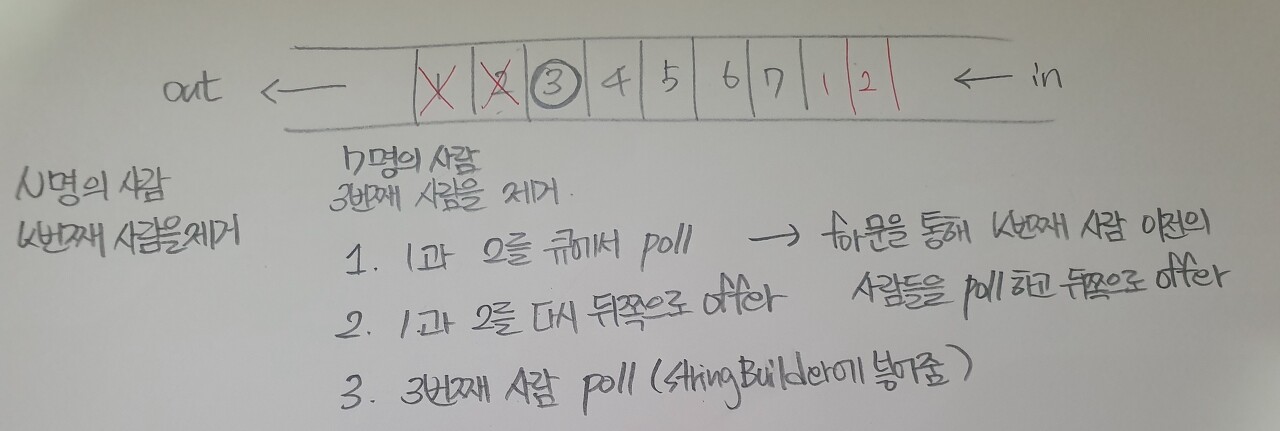 out ← 1 2 3 4 5 6 7 1 2 ← in
N명의 사람
K번째 사람을 제거
7명의 사람
3번째 사람을 제거.
1. 1과 2를 큐에서 poll → for문을 통해 K번째 사람 이전의
사람들을 poll 하고 뒤쪽으로 offer
2. 1과 2를 다시 뒤쪽으로 offer
3. 3번째 사람 poll (StringBuilder에 넣어줌)